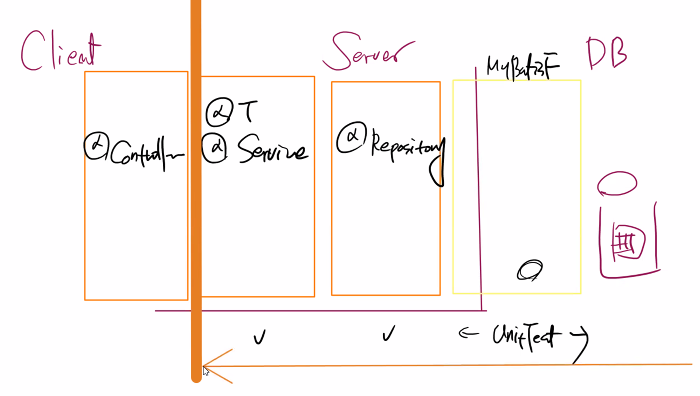 Client
Server
MyBatisF
DB
@ Controller
@ T
@ Service
@ Repository
✓
✓
← UnitTest →